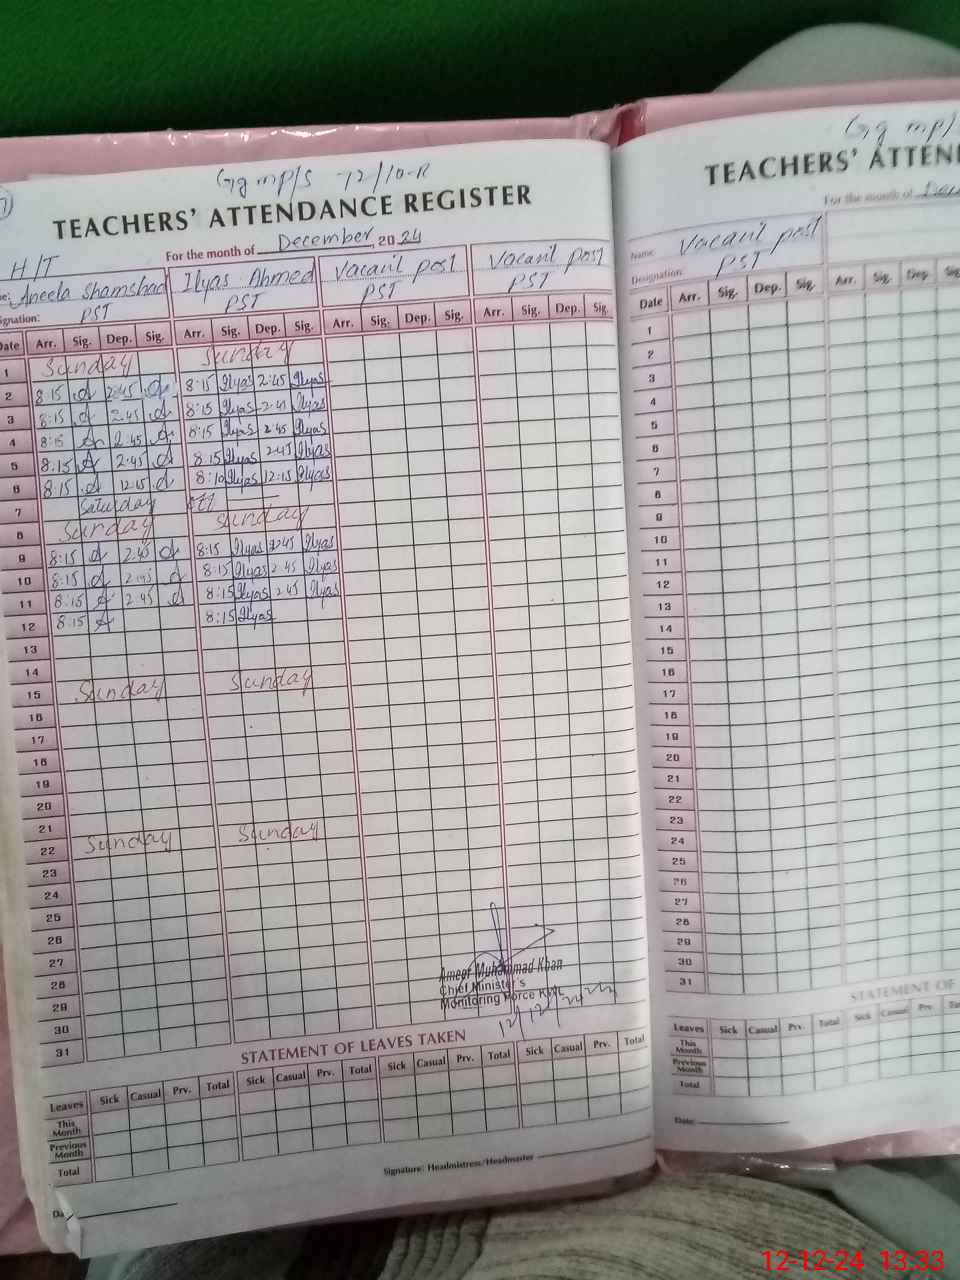 Gg mp/s 72/10-R
TEACHERS' ATTENDANCE REGISTER
For the month of December, 2024
H/T
Aneela Shamshad Ilyas Ahmed Vacant post Vacant post
signation: PST PST PST PST
Date Arr. Sig. Dep. Sig. Arr. Sig. Dep. Sig. Arr. Sig. Dep. Sig. Arr. Sig. Dep. Sig.
1 Sunday Sunday
2 8:15 2:45 8:15 Ilyas 2:45 Ilyas
3 8:15 2:45 8:15 Ilyas 2:45 Ilyas
4 8:15 2:45 8:15 Ilyas 2:45 Ilyas
5 8:15 2:45 8:15 Ilyas 2:45 Ilyas
6 8:15 12:15 8:10 Ilyas 12:15 Ilyas
7 Saturday
8 Sunday Sunday
9 8:15 2:45 8:15 Ilyas 2:45 Ilyas
10 8:15 2:45 8:15 Ilyas 2:45 Ilyas
11 8:15 2:45 8:15 Ilyas 2:45 Ilyas
12 8:15 8:15 Ilyas
13
14
15 Sunday Sunday
16
17
18
19
20
21
22 Sunday Sunday
23
24
25
26
27
28
29
30
31
Ameer Muhammad Khan
Chief Minister's
Monitoring Force KWL
12/12/24
STATEMENT OF LEAVES TAKEN
Leaves Sick Casual Prv. Total Sick Casual Prv. Total Sick Casual Prv. Total Sick Casual Prv. Total
This Month
Previous Month
Total
Signature: Headmistress/Headmaster
Gg mp/
TEACHERS' ATTEN
For the month of Dec
Name: Vacant post
Designation: PST
Date Arr. Sig. Dep. Sig. Arr. Sig. Dep. Sig.
1
2
3
4
5
6
7
8
9
10
11
12
13
14
15
16
17
18
19
20
21
22
23
24
25
26
27
28
29
30
31
STATEMENT OF
Leaves Sick Casual Prv. Total Sick Casual Prv.
This Month
Previous Month
Total
Date:
12-12-24 13:33